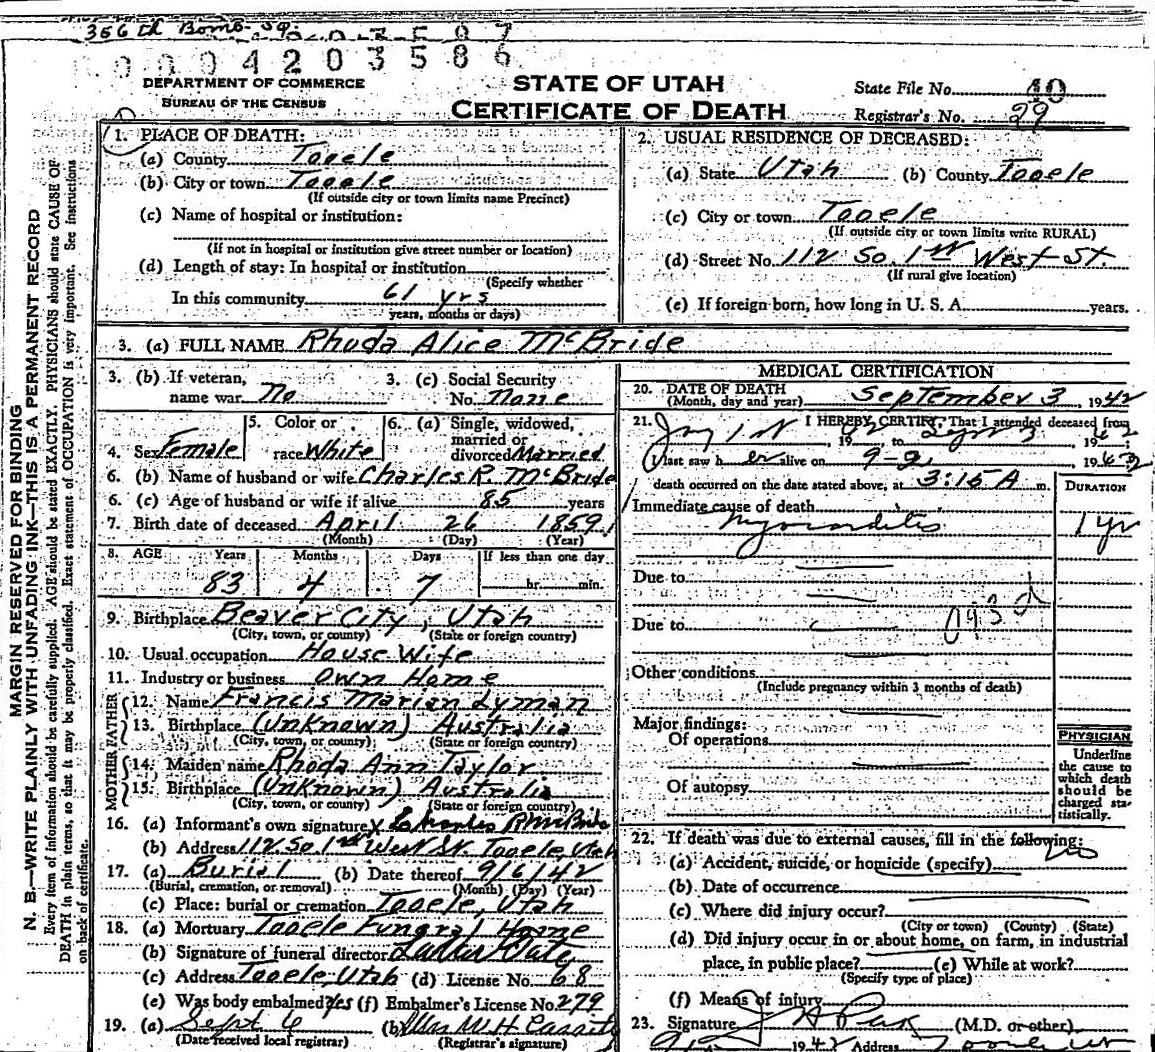 356th Bomb. Sq.
0004203586
DEPARTMENT OF COMMERCE
BUREAU OF THE CENSUS
STATE OF UTAH
CERTIFICATE OF DEATH
State File No. 40
Registrar's No. 29
MARGIN RESERVED FOR BINDING
N. B.—WRITE PLAINLY WITH UNFADING INK—THIS IS A PERMANENT RECORD
Every item of information should be carefully supplied. AGE should be stated EXACTLY. PHYSICIANS should state CAUSE OF
DEATH in plain terms, so that it may be properly classified. Exact statement of OCCUPATION is very important. See instructions
on back of certificate.
1. PLACE OF DEATH:
(a) County Tooele
(b) City or town Tooele
(If outside city or town limits name Precinct)
(c) Name of hospital or institution:
(If not in hospital or institution give street number or location)
(d) Length of stay: In hospital or institution
(Specify whether
In this community 61 yrs
years, months or days)
2. USUAL RESIDENCE OF DECEASED:
(a) State Utah (b) County Tooele
(c) City or town Tooele
(If outside city or town limits write RURAL)
(d) Street No. 112 So. 1st West St.
(If rural give location)
(e) If foreign born, how long in U. S. A. years.
3. (a) FULL NAME Rhoda Alice McBride
3. (b) If veteran, name war No
3. (c) Social Security No. None
4. Sex Female
5. Color or race White
6. (a) Single, widowed, married or divorced Married
6. (b) Name of husband or wife Charles R. McBride
6. (c) Age of husband or wife if alive 85 years
7. Birth date of deceased April 26 1859
(Month) (Day) (Year)
8. AGE Years Months Days If less than one day
83 4 7 hr. min.
9. Birthplace Beaver City, Utah
(City, town, or county) (State or foreign country)
10. Usual occupation House Wife
11. Industry or business Own Home
FATHER
12. Name Francis Marian Lyman
13. Birthplace (Unknown) Australia
(City, town, or county) (State or foreign country)
MOTHER
14. Maiden name Rhoda Ann Taylor
15. Birthplace (Unknown) Australia
(City, town, or county) (State or foreign country)
16. (a) Informant's own signature x Charles R McBride
(b) Address 112 So 1st West St. Tooele, Utah
17. (a) Burial (b) Date thereof 9/6/42
(Burial, cremation, or removal) (Month) (Day) (Year)
(c) Place: burial or cremation Tooele, Utah
18. (a) Mortuary Tooele Funeral Home
(b) Signature of funeral director
(c) Address Tooele, Utah (d) License No. 68
(e) Was body embalmed? Yes (f) Embalmer's License No. 279
19. (a) Sept 6 (b) Mrs W. H. Cassity
(Date received local registrar) (Registrar's signature)
MEDICAL CERTIFICATION
20. DATE OF DEATH
(Month, day and year) September 3, 1942
21. I HEREBY CERTIFY, That I attended deceased from
1st 19 42 to 3 1942
I last saw her alive on 9-2, 1942
death occurred on the date stated above, at 3:15 A m.
DURATION
Immediate cause of death
Myocarditis 1 yr
Due to
Due to 093d
Other conditions
(Include pregnancy within 3 months of death)
Major findings:
Of operations
Of autopsy
PHYSICIAN
Underline
the cause to
which death
should be
charged sta-
tistically.
22. If death was due to external causes, fill in the following:
(a) Accident, suicide, or homicide (specify) No
(b) Date of occurrence
(c) Where did injury occur?
(City or town) (County) (State)
(d) Did injury occur in or about home, on farm, in industrial
place, in public place? (e) While at work?
(Specify type of place)
(f) Means of injury
23. Signature (M.D. or other)
1942 Address Tooele Ut